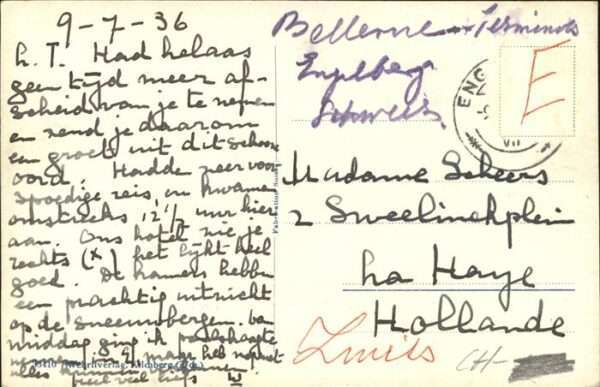 9-7-36
L. T. Had helaas
geen tijd meer af-
scheid van je te nemen
en zend je daarom
een groet uit dit schoone
oord. Hadde zeer voor-
spoedige reis, en kwamen
omstreeks 12 1/2 uur hier
aan. Ons hotel zie je
rechts (x) het lijkt heel
goed. De kamers hebben
een prachtig uitzicht
op de sneeuwbergen. Van
middag ging ik
maar heb nog niet
alles kunnen
heel veel liefs W
Bellevue-Terminus
Engelberg
Schweiz
E
ENG
VII
Madame Scheers
2 Sweelinckplein
La Haye
Hollande
Zwits
CH-
Wehrliverlag, Kilchberg (Zch.)